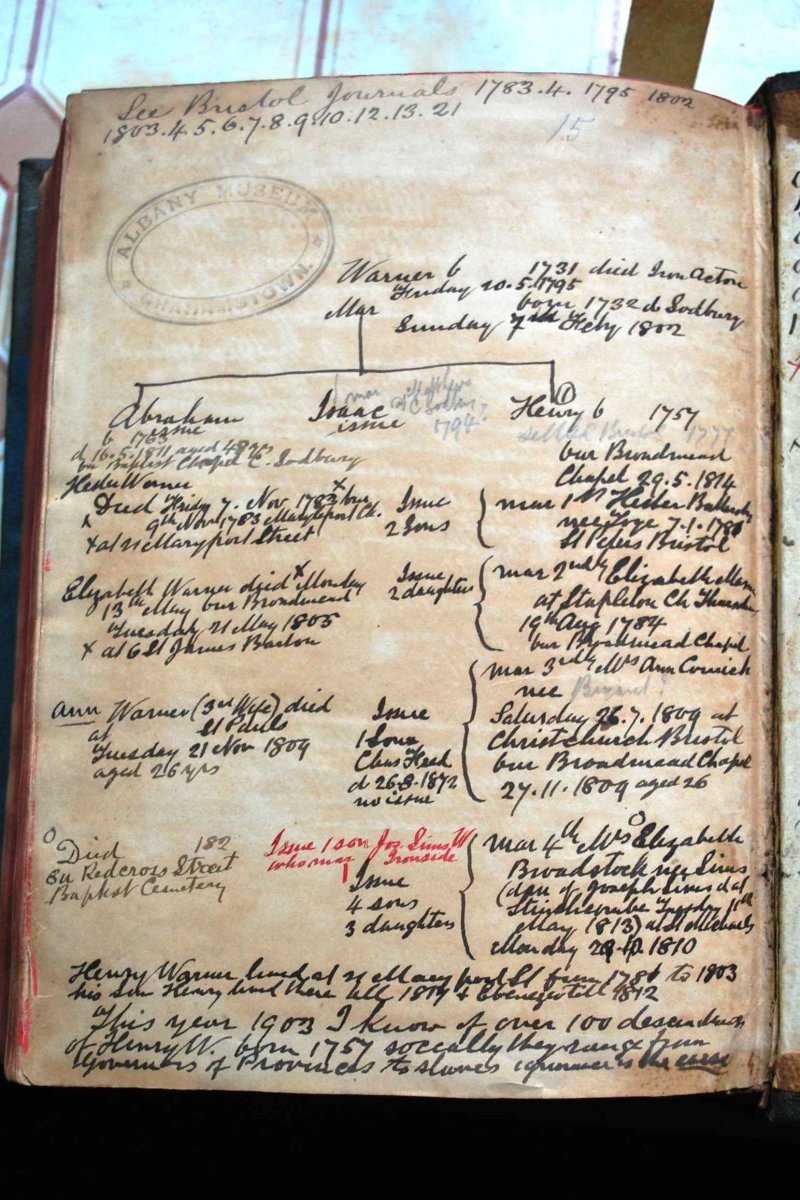 See Bristol Journals 1783.4. 1795 1802
1803.4.5.6.7.8.9.10.12.13.21
15
ALBANY MUSEUM
GRAHAMSTOWN.
Warner b 1731 died Iron Acton
Friday 20.5.1795
Mar born 1732 d Sodbury
Sunday 7th Feby 1802
Abraham
b 1763
issue
d 16.5.1811 aged 48 yrs
bu Baptist Chapel C. Sodbury
Isaac
issue
mar
1794
1
Henry b 1757
settled Bristol 1777
bur Broadmead
Chapel 29.5.1814
Hester Warner
Died Friday 7. Nov 1783 x bur
9th Nov 1783 Maryleport Ch.
x at 21 Maryport Street
Issue
2 Sons
mar 1st Hester
nee 7.1.178
St Peters Bristol
Elizabeth Warner died x Monday
13th May bur Broadmead
Tuesday 21 May 1805
x at 6 St James Barton
Issue
2 daughters
mar 2ndly Elizabeth
at Stapleton Ch
19th Aug 1784
bur Broadmead Chapel
Ann Warner (3rd Wife) died
at St Pauls
Tuesday 21 Nov 1809
aged 26 yrs
Issue
1 Son
Chas Head
d 26.8.1872
no issue
mar 3rdly Mrs Ann
nee
Saturday 26.7.1809 at
Christchurch Bristol
bur Broadmead Chapel
27.11.1809 aged 26
O
Died 182
Bu Redcross Street
Baptist Cemetery
Issue 1 son Jos. Sims W
who mar Ironside
Issue
4 sons
3 daughters
mar 4th Mrs Elizabeth
Broadstock nee Sims
(dau of Joseph Sims d at
Stinchcombe Tuesday 11th
May 1813) at St Michaels
Monday 1810
Henry Warner lived at 21 Mary port St from 178 to 1803
his son Henry lived there till & Ebenezer till 1812
This year 1903 I know of over 100 descendants
of Henry W. born 1757 socially they range from
Governors of Provinces to slaves